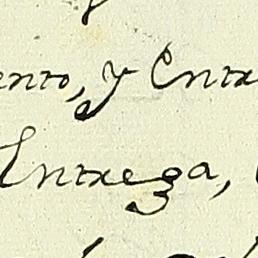 ento, y Entr
Entrega,